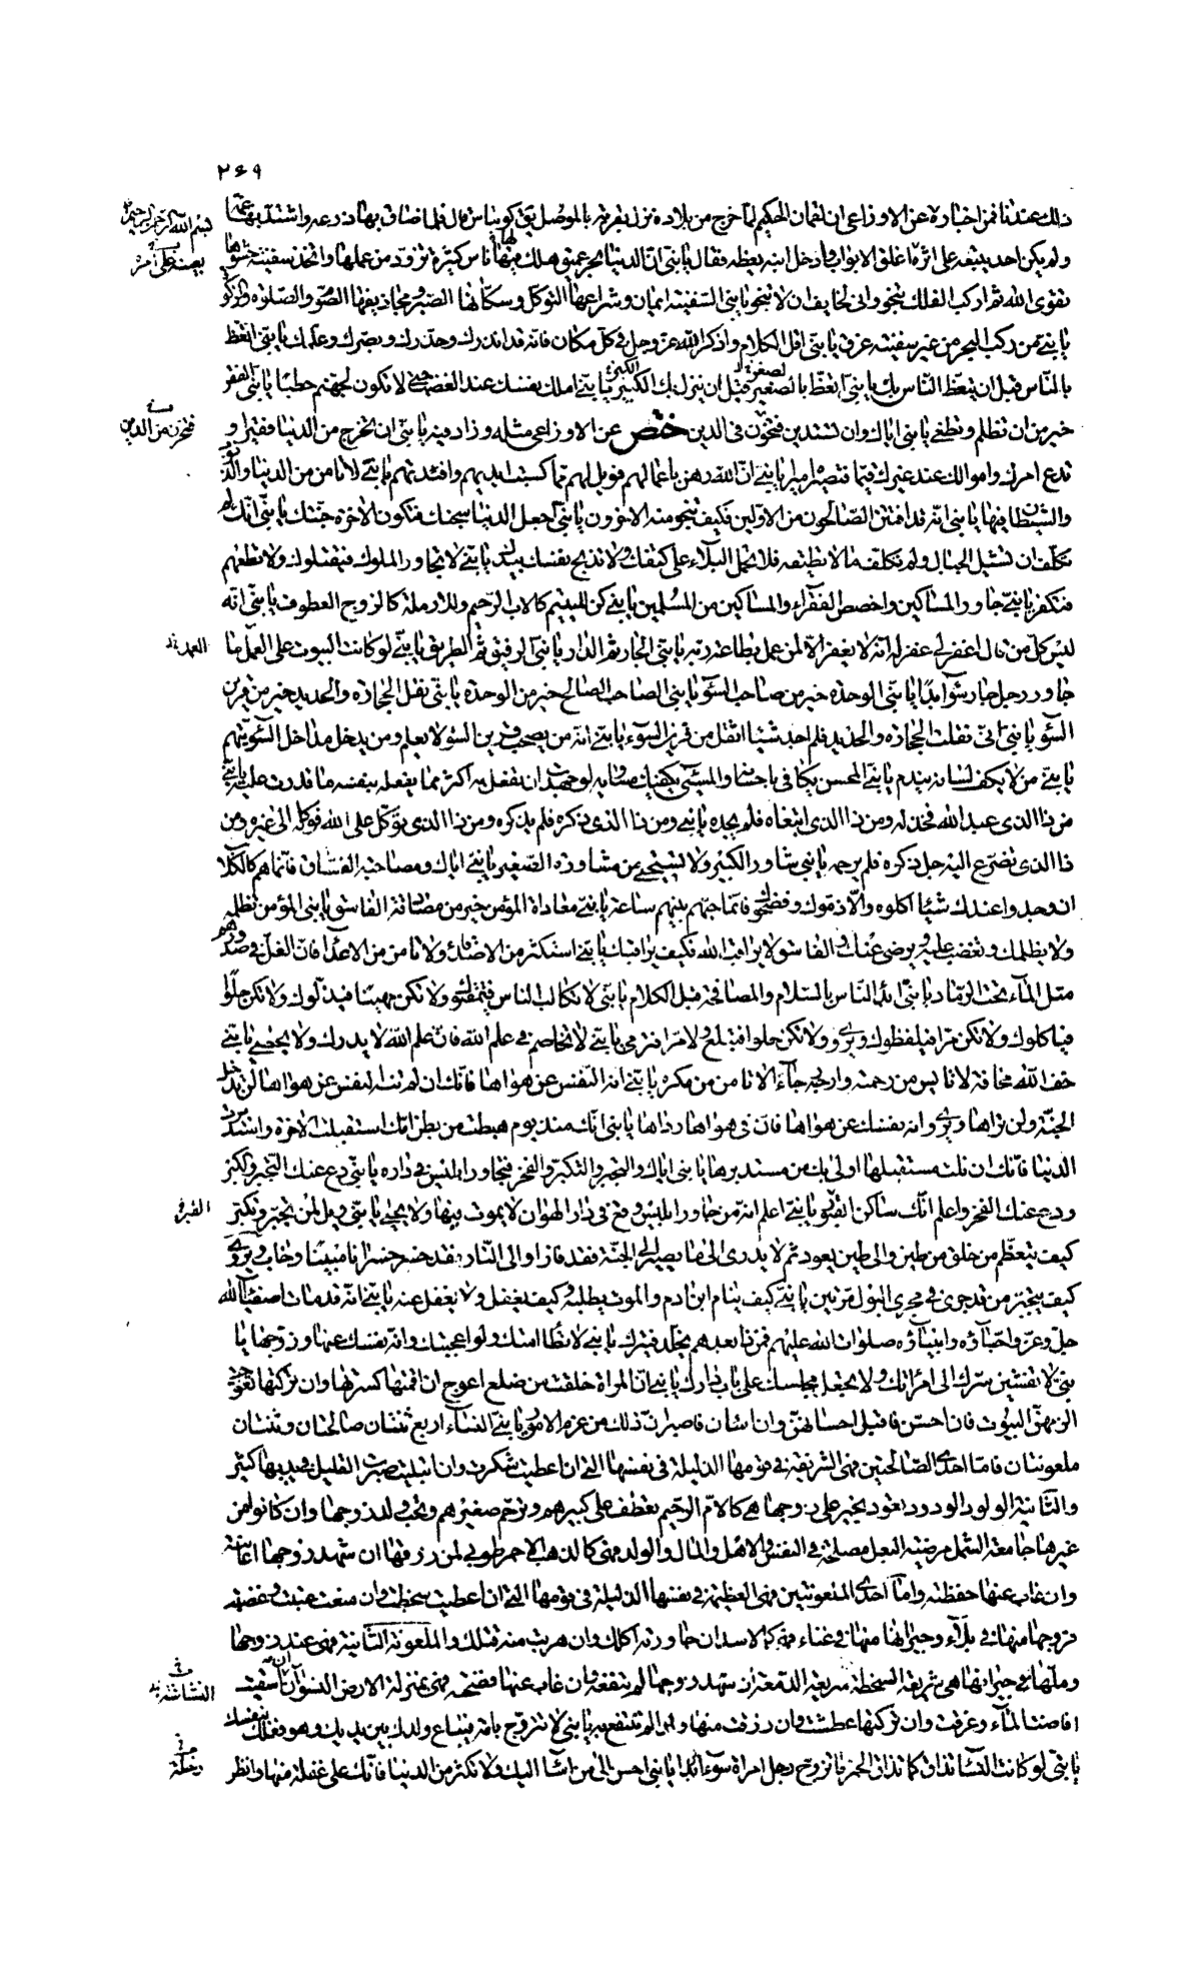 ٢٦٩
ذلك عندنا فمن اخباره عن الاوزاعى ان لقمان الحكيم لما خرج من بلاده نزل بقرية بالموصل يق كوبناس قال فلما ضاق بها ذرعه واشتد بها غمه
ولم يكن احد يتبعه على اثره اغلق الابواب وادخل ابنه يعظه فقال يا بنى ان الدنيا بحر عميق هلك فيها ناس كثيرة تزود من عملها واتخذ سفينة حشوها
تقوى الله ثم اركب الفلك تنجو وانى لخايف ان لا تنجو يا بنى السفينة ايمان وشراعها التوكل وسكانها الصبر ومجاذيفها الصوم والصلوة والزكوة
يا بنى من ركب البحر من غير سفينة غرق يا بنى اقل الكلام واذكر الله عز وجل فى كل مكان فانه قد انذرك وحذرك وبصرك وعلمك يا بنى اتعظ
بالناس قبل ان يتعظ الناس بك يا بنى اتعظ بالصغير قبل ان ينزل بك الكبير يا بنى املك نفسك عند الغضب حتى لا تكون لجهنم حطبا يا بنى الفقر
خير من ان تظلم وتطغى يا بنى اياك وان تستدين فتخون فى الدين ختص عن الاوزاعى مثله وزاد فيه يا بنى ان تخرج من الدنيا فقيرا و
تدع امرك واموالك عند غيرك قيما فتصيره اميرا يا بنى ان الله رهن الناس باعمالهم فويل لهم مما كسبت ايديهم وافئدتهم يا بنى لا تامن من الدنيا والذنوب
والشيطان فيها يا بنى انه قد افتتن الصالحون من الاولين فكيف تنجو منه الاخرون يا بنى اجعل الدنيا سجنك فتكون الاخرة جنتك يا بنى انك لم
تكلف ان تشيل الجبال ولم تكلف ما لا تطيقه فلا تحمل البلاء على كتفك ولا تذبح نفسك بيدك يا بنى لا تجاور الملوك فيقتلوك ولا تطعهم
فتكفر يا بنى جاور المساكين واخصص الفقراء والمساكين من المسلمين يا بنى كن لليتيم كالاب الرحيم وللارملة كالزوج العطوف يا بنى انه
ليس كل من قال اغفر لى غفر له انه لا يغفر الا لمن عمل بطاعة ربه يا بنى الجار ثم الدار يا بنى الرفيق ثم الطريق يا بنى لو كانت البيوت على العمل ما
جاور رجل جار سوء ابدا يا بنى الوحدة خير من صاحب السوء يا بنى الصاحب الصالح خير من الوحدة يا بنى نقل الحجارة والحديد خير من قرين
السوء يا بنى انى نقلت الحجارة والحديد فلم اجد شيئا اثقل من قرين السوء يا بنى انه من يصحب قرين السوء لا يسلم ومن يدخل مداخل السوء يتهم
يا بنى من لا يكف لسانه يندم يا بنى المحسن يكافى باحسانه والمسيئ يكفيك مساويه لو جهدت ان تفعل به اكثر مما يفعله بنفسه ما قدرت عليه يا بنى
من ذا الذى عبد الله فخذله ومن ذا الذى ابتغاه فلم يجده يا بنى ومن ذا الذى ذكره فلم يذكره ومن ذا الذى توكل على الله فوكله الى غيره ومن
ذا الذى تضرع اليه جل ذكره فلم يرحمه يا بنى شاور الكبير ولا تستحيى من مشاورة الصغير يا بنى اياك ومصاحبة الفساق فانما هم كالكلاب
ان وجدوا عندك شيئا اكلوه والا ذموك وفضحوك فانما حبهم بينهم ساعة يا بنى معاداة المؤمن خير من مصادقة الفاسق يا بنى المؤمن تظلمه
ولا يظلمك وتغضب عليه ويرضى عنك والفاسق لا يراقب الله فكيف يراقبك يا بنى استكثر من الاصدقاء ولا تامن من الاعداء فان الغل فى صدورهم
مثل الماء تحت الرماد يا بنى ابدء الناس بالسلام والمصافحة قبل الكلام يا بنى لا تكالب الناس فيمقتوك ولا تكن مهينا فيذلوك ولا تكن حلوا
فياكلوك ولا تكن مرا فيلفظوك ويروى ولا تكن حلوا فتبلع ولا مرا فترمى يا بنى لا تخاصم فى علم الله فان علم الله لا يدرك ولا يحصى يا بنى
خف الله مخافة لا تايس من رحمته وارجه رجاء لا تامن من مكره يا بنى انه النفس عن هواها فانك ان لم تنه النفس عن هواها لن تدخل
الجنة ولن تراها ويروى وانه نفسك عن هواها فان فى هواها رداها يا بنى انك منذ يوم هبطت من بطن امك استقبلت الاخرة واستدبرت
الدنيا فانك ان نلت مستقبلها اولى بك من مستدبرها يا بنى اياك والتجبر والتكبر والفخر فتجاور ابليس فى داره يا بنى دع عنك التجبر والكبر
ودع عنك الفخر واعلم انك ساكن القبور يا بنى اعلم انه من جاور ابليس وقع فى دار الهوان لا يموت فيها ولا يحيى يا بنى ويل لمن تجبر وتكبر
كيف يتعظم من خلق من طين والى طين يعود ثم لا يدرى الى ما يصير الى الجنة فقد فاز او الى النار فقد خسر خسرانا مبينا وخاب ويروى
كيف يتجبر من قد جرى فى مجرى البول مرتين يا بنى كيف ينام ابن ادم والموت يطلبه وكيف يغفل ولا يغفل عنه يا بنى انه قد مات اصفياء الله
جل وعز واحباؤه وانبياؤه صلوات الله عليهم فمن ذا بعدهم يخلد فيترك يا بنى لا تطأ امتك ولو اعجبتك وانه نفسك عنها وزوجها يا
بنى لا تفشين سرك الى امرأتك ولا تجعل مجلسك على باب دارك يا بنى ان المراة خلقت من ضلع اعوج ان اقمتها كسرتها وان تركتها تعوجت
الزمهن البيوت فان احسن فاقبل احسانهن وان اسان فاصبر ان ذلك من عزم الامور يا بنى النساء اربع ثنتان صالحتان وثنتان
ملعونتان فاما احدى الصالحتين فهى الشريفة فى قومها الذليلة فى نفسها التى ان اعطيت شكرت وان ابتليت صبرت القليل فى يديها كثير
والثانية الولود الودود تعود بخير على زوجها هى كالام الرحيم تعطف على كبيرهم وترحم صغيرهم وتحب ولد زوجها وان كانوا من
غيرها جامعة الشمل مرضية البعل مصلحة فى النفس والاهل والمال والولد فهى كالذهب الاحمر طوبى لمن رزقها ان شهد زوجها اعانته
وان غاب عنها حفظته واما احدى الملعونتين فهى العظيمة فى نفسها الذليلة فى قومها التى ان اعطيت سخطت وان منعت عتبت وغضبت
فزوجها منها فى بلاء وجيرانها منها فى عناء فهى كالاسد ان جاورته اكلك وان هربت منه قتلك والملعونة الثانية فهى عند زوجها
وملها فى جيرانها هى سريعة السخطة سريعة الدمعة ان شهد زوجها لم تنفعه وان غاب عنها فضحته فهى بمنزلة الارض النشوان ان اسقيت
افاضت الماء وغرقت وان تركتها عطشت وان رزقت منها ولدا لم تنتفع به يا بنى لا تتزوج بامة فيباع ولدك بين يديك وهو فعلك بنفسك
يا بنى لو كانت النساء تذاق كما تذاق الخمر ما تزوج رجل امراة سوء ابدا يا بنى احسن الى من اساء اليك ولا تكثر من الدنيا فانك على غفلة منها وانظر
بسم الله الرحمن الرحيم
فتخزن من الدين
العمد
القبر
النشاشة
رحلة